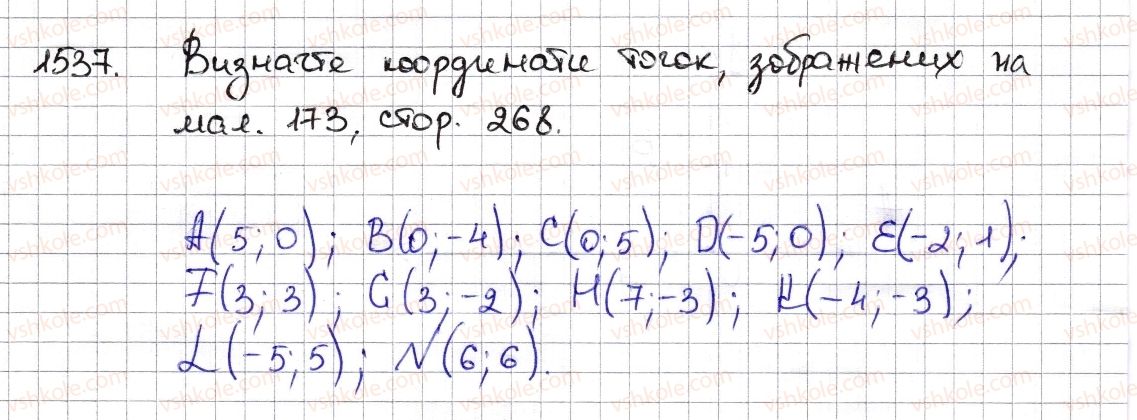 1537. Визначте координати точок, зображених на
мал. 173, стор. 268.
A(5; 0); B(0; -4); C(0; 5); D(-5; 0); E(-2; 1);
F(3; 3); G(3; -2); H(7; -3); K(-4; -3);
L(-5; 5); N(6; 6).